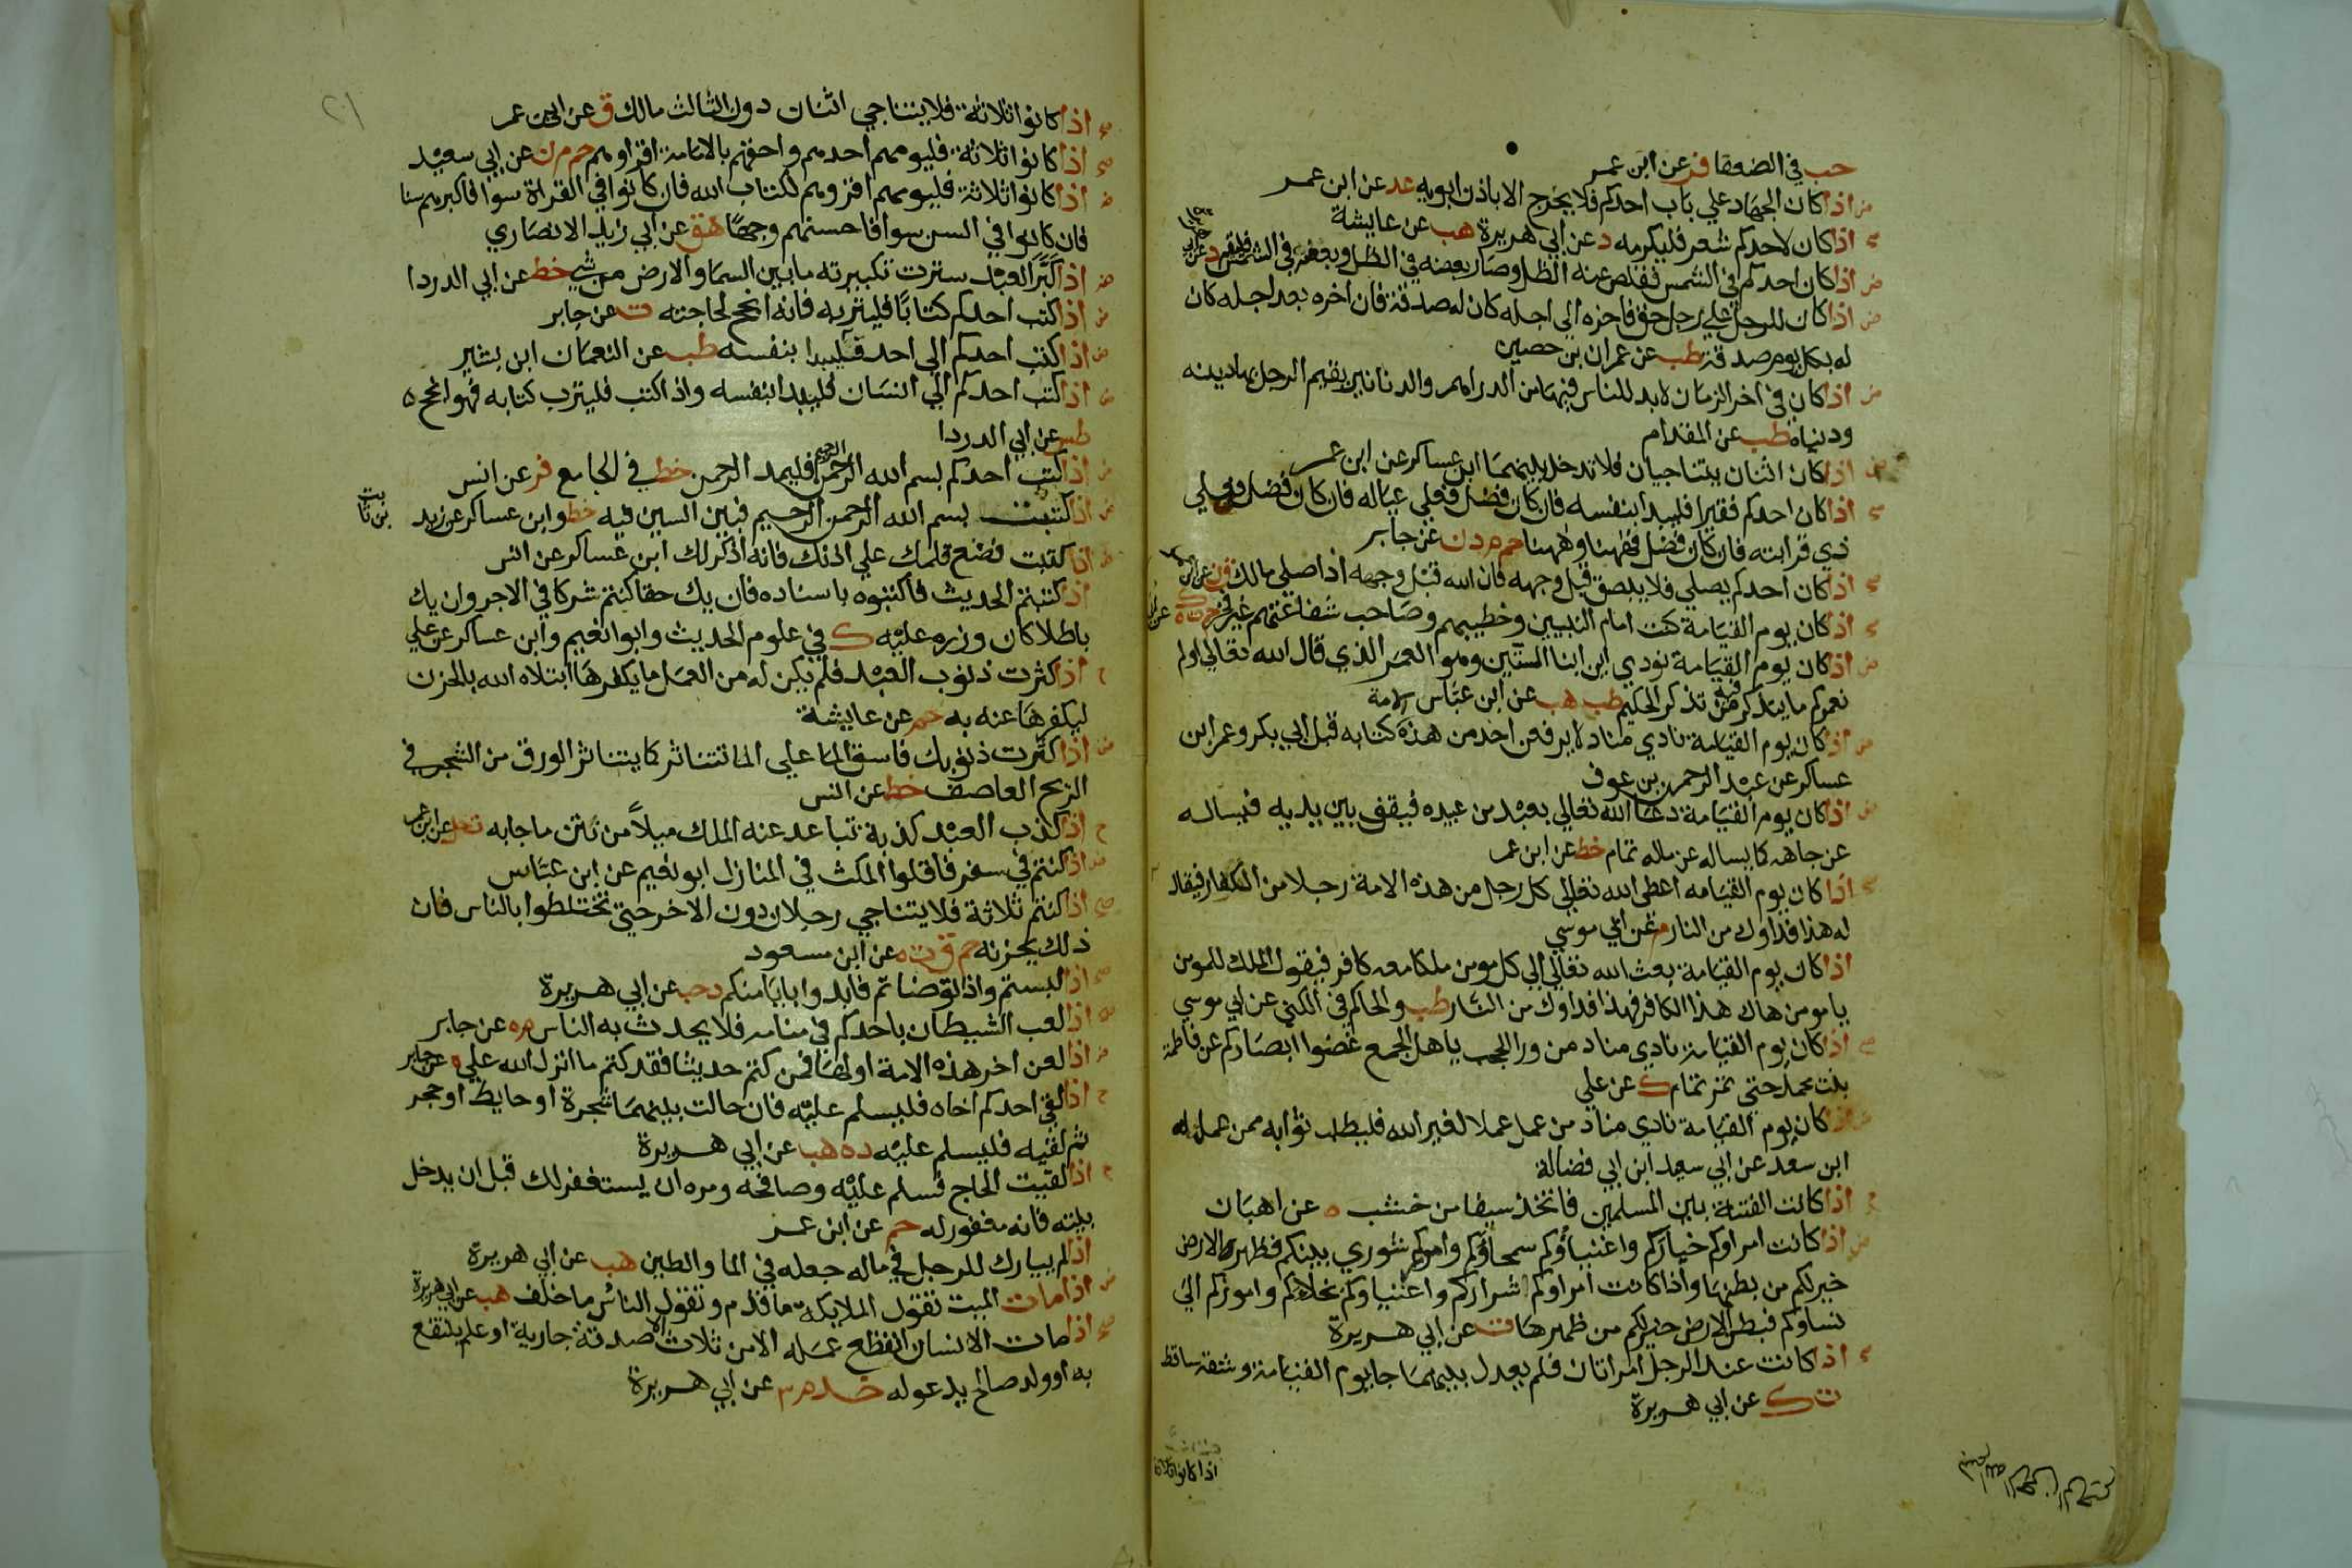 حب في الضعفا فر عن ابن عمر
اذا كان الجهاد علي باب احدكم فلا يخرج الا باذن ابويه عد عن ابن عمر
اذا كان لاحدكم شعر فليكرمه د عن ابي هريرة هب عن عايشة
اذا كان احدكم في الشمس فقلص عنه الظل وصار بعضه في الظل وبعضه في الشمس فليقم د عن ابي هريرة
اذا كان للرجل علي رجل حق فاخره الي اجله كان له صدقة فان اخره بعد اجله كان
له بكل يوم صدقة طب عن عمران بن حصين
اذا كان في اخر الزمان لا بد للناس فيها من الدراهم والدنانير يقيم الرجل بها دينه
ودنياه طب عن المقدام
اذا كان اثنان يتناجيان فلا تدخل بينهما ابن عساكر عن ابن عمر
اذا كان احدكم فقيرا فليبدا بنفسه فان كان فضل فعلي عياله فان كان فضل فعلي
ذي قرابته فان كان فضل فههنا وههنا حم م د ن عن جابر
اذا كان احدكم يصلي فلا يبصق قبل وجهه فان الله قبل وجهه اذا صلي مالك ق ن عن ابن عمر
اذا كان يوم القيامة كنت امام النبيين وخطيبهم وصاحب شفاعتهم غير فخر حم ت ه ك
اذا كان يوم القيامة نودي اين ابنا الستين وهو العمر الذي قال الله تعالي اولم
نعمركم ما يتذكر فيه من تذكر الحكيم طب هب عن ابن عباس
اذا كان يوم القيامة نادي مناد لا يرفعن احد من هذه الامة كتابه قبل ابي بكر وعمر ابن
عساكر عن عبد الرحمن بن عوف
اذا كان يوم القيامة دعا الله تعالي بعبد من عبيده فيقف بين يديه فيساله
عن جاهه كما يساله عن ماله تمام خط عن ابن عمر
اذا كان يوم القيامه اعطي الله تعالي كل رجل من هذه الامة رجلا من الكفار فيقال
له هذا فداوك من النار م عن ابي موسي
اذا كان يوم القيامة بعث الله تعالي الي كل مومن ملكا معه كافر فيقول الملك للمومن
يا مومن هاك هذا الكافر فهذا فداوك من النار طب والحاكم في الكني عن ابي موسي
اذا كان يوم القيامة نادي مناد من ورا الحجب يا هل الجمع غضوا ابصاركم عن فاطمة
بنت محمد حتي تمر تمام ك عن علي
اذا كان يوم القيامة نادي مناد من عمل عملا لغير الله فليطلب ثوابه ممن عمله له
ابن سعد عن ابي سعيد ابن ابي فضالة
اذا كانت الفتنة بين المسلمين فاتخذ سيفا من خشب ه عن اهبان
اذا كانت امراوكم خياركم واغنياؤكم سمحاؤكم واموركم شوري بينكم فظهر الارض
خير لكم من بطنها واذا كانت امراوكم اشراركم واغنياوكم بخلاكم واموركم الي
نساوكم فبطن الارض خير لكم من ظهرها ت عن ابي هريرة
اذا كانت عند الرجل امراتان فلم يعدل بينهما جا يوم القيامة وشقه ساقط
ت ك عن ابي هريرة
اذا كانوا ثلاثة
٢١
اذا كانوا ثلاثة فلا يتناجي اثنان دون الثالث مالك ق عن ابن عمر
اذا كانوا ثلاثة فليومهم احدهم واحقهم بالامامة اقراوهم حم م ن عن ابي سعيد
اذا كانوا ثلاثة فليومهم اقروهم لكتاب الله فان كانوا في القراة سوا فاكبرهم سنا
فان كانوا في السن سوا فاحسنهم وجها هق عن ابي زيد الانصاري
اذا كبر العبد سترت تكبيرته ما بين السما والارض من شي خط عن ابي الدردا
اذا كتب احدكم كتابا فليتربه فانه انجح لحاجته ت عن جابر
اذا كتب احدكم الي احد فليبدا بنفسه طب عن النعمان ابن بشير
اذا كتب احدكم الي انسان فليبدا بنفسه واذا كتب فليترب كتابه فهو انجح ه
طس عن ابي الدردا
اذا كتب احدكم بسم الله الرحمن الرحيم فليمد الرحمن خط في الجامع فر عن انس
اذا كتبت بسم الله الرحمن الرحيم فبين السين فيه خط وابن عساكر عن زيد بن ثابت
اذا كتبت فضع قلمك علي اذنك فانه اذكر لك ابن عساكر عن انس
اذا كتبتم الحديث فاكتبوه باسناده فان يك حقا كنتم شركا في الاجر وان يك
باطلا كان وزره عليه ك في علوم الحديث وابو نعيم وابن عساكر عن علي
اذا كثرت ذنوب العبد فلم يكن له من العمل ما يكفرها ابتلاه الله بالحزن
ليكفرها عنه به حم عن عايشة
اذا كثرت ذنوبك فاسق الما علي الما تتناثر كما يتناثر الورق من الشجر في
الريح العاصف خط عن انس
اذا كذب العبد كذبة تباعد عنه الملك ميلا من نتن ما جا به ت حل عن ابن عمر
اذا كنتم في سفر فاقلوا المكث في المنازل ابو نعيم عن ابن عباس
اذا كنتم ثلاثة فلا يتناجي رجلان دون الاخر حتي تختلطوا بالناس فان
ذلك يحزنه حم ق ت ه عن ابن مسعود
اذا لبستم واذا توضاتم فابدوا بايامنكم د حب عن ابي هريرة
اذا لعب الشيطان باحدكم في منامه فلا يحدث به الناس م ه عن جابر
اذا لعن اخر هذه الامة اولها فمن كتم حديثا فقد كتم ما انزل الله علي ه عن جابر
اذا لقي احدكم اخاه فليسلم عليه فان حالت بينهما شجرة او حايط او حجر
ثم لقيه فليسلم عليه د ه هب عن ابي هريرة
اذا لقيت الحاج فسلم عليه وصافحه ومره ان يستغفر لك قبل ان يدخل
بيته فانه مغفور له حم عن ابن عمر
اذا لم يبارك للرجل في ماله جعله في الما والطين هب عن ابي هريرة
اذا مات الميت تقول الملايكة ما قدم وتقول الناس ما خلف هب عن ابي هريرة
اذا مات الانسان انقطع عمله الا من ثلاث صدقة جارية او علم ينتفع
به او ولد صالح يدعو له خد م ٣ عن ابي هريرة